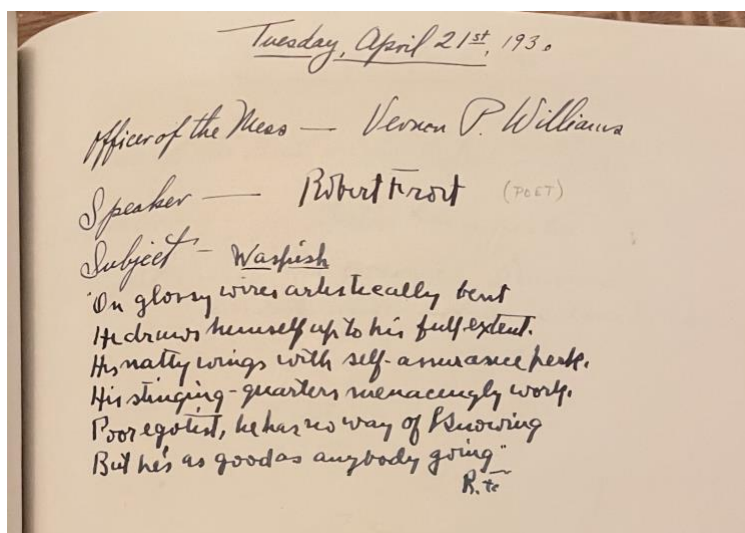 Tuesday, April 21st, 193.
Officer of the Mess — Vernon P. Williams
Speaker — Robert Frost (POET)
Subject - Waspish
"On glossy wires artistically bent
He draws himself up to his full extent.
His natty wings with self-assurance perk.
His stinging-quarters menacingly work.
Poor egotist, he has no way of knowing
But he's as good as anybody going"
R. F.